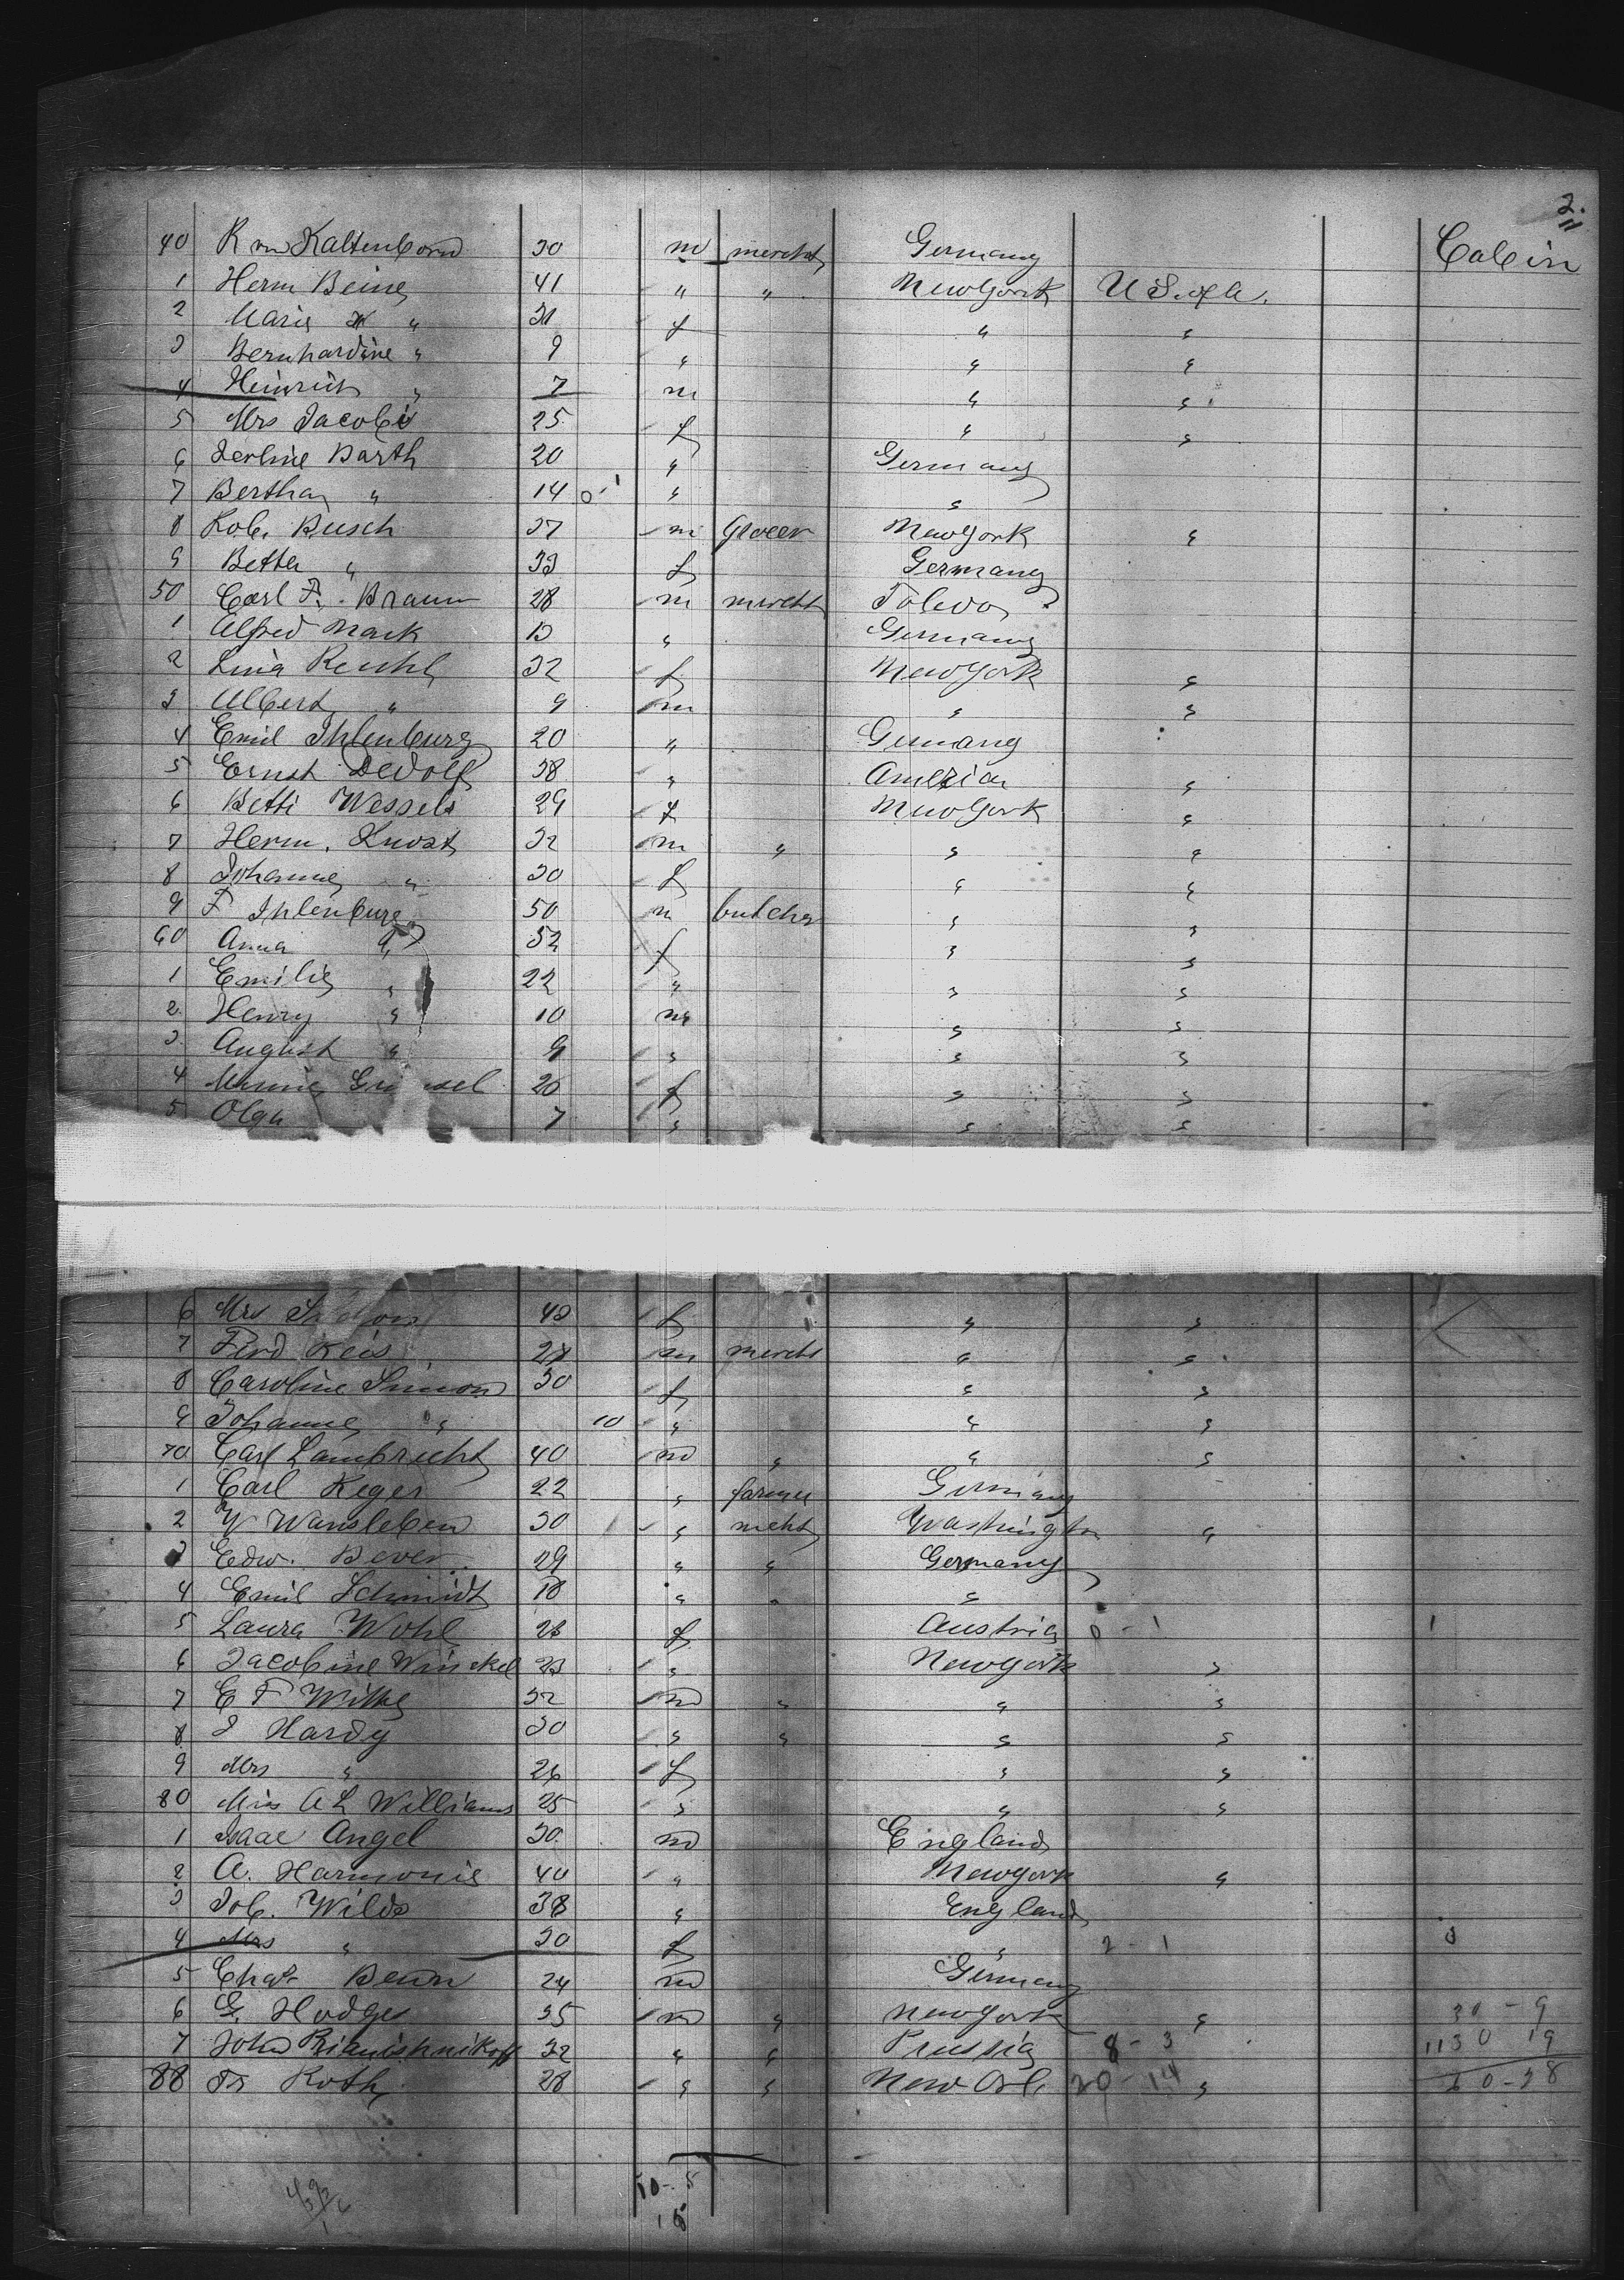 2.
40 R von Kaltenborn 30 m mercht Germany Cabin
1 Herm Beine 41 " " New York U S. of a.
2 Marie " 31 f " "
3 Bernhardine " 9 " " "
4 Heinrich " 7 m " "
5 Mrs Jacobi 25 f " "
6 Barth 20 " Germany
7 Bertha " 14 " "
8 Rob. Busch 37 m Grocer New York "
9 Betta " 33 f Germany
50 Carl F. Braun 28 m mercht Toledo
1 Alfred Mack 13 " Germany
2 Lina 32 f New York "
3 Albert " 9 m " "
4 Emil Ihlenburg 20 " Germany
5 Ernst Dedolf 38 " America "
6 Betti Wessels 29 f New York "
7 Herm. Knost 32 m " " "
8 Johanne " 30 f " "
9 F Ihlenburg 50 m butcher " "
60 Anna " 52 f " "
1 Emilie " 22 " " "
2 Henry " 10 m " "
3 August " 9 " " "
4 Minnie 26 f " "
5 Olga 7 " " "
6 Mrs 43 f " "
7 Ferd Reis 27 m mercht " "
8 Caroline Simon 30 f " "
9 Johanne " 10 " " "
70 Carl Lambrecht 40 m " " "
1 Carl Reger 22 " farmer Germany
2 W Wansleben 30 " mcht Washington "
3 Edw. Bever 29 " " Germany
4 Emil Schmidt 18 " " "
5 Laura Wohl 23 f Austria 0 - 1 1
6 Jacobine Winckel 23 " New York "
7 E F Wilke 32 m " " "
8 J Hardy 30 " " " "
9 Mrs " 26 f " "
80 Miss A L Williams 25 " " "
1 Isaac Angel 30 m England
2 A. Harmonie 40 " New York "
3 Job. Wilds 38 " England
4 Mrs " 30 f " 2 - 1
5 Chas. 24 m Germany
6 G. Hodges 35 m " New York " 30 - 9
7 John Prianishnikoff 32 " " Prussia 8 - 3 1130 19
88 Fr Roth 28 " " New Orl. 20 - 14 "
10 - 5